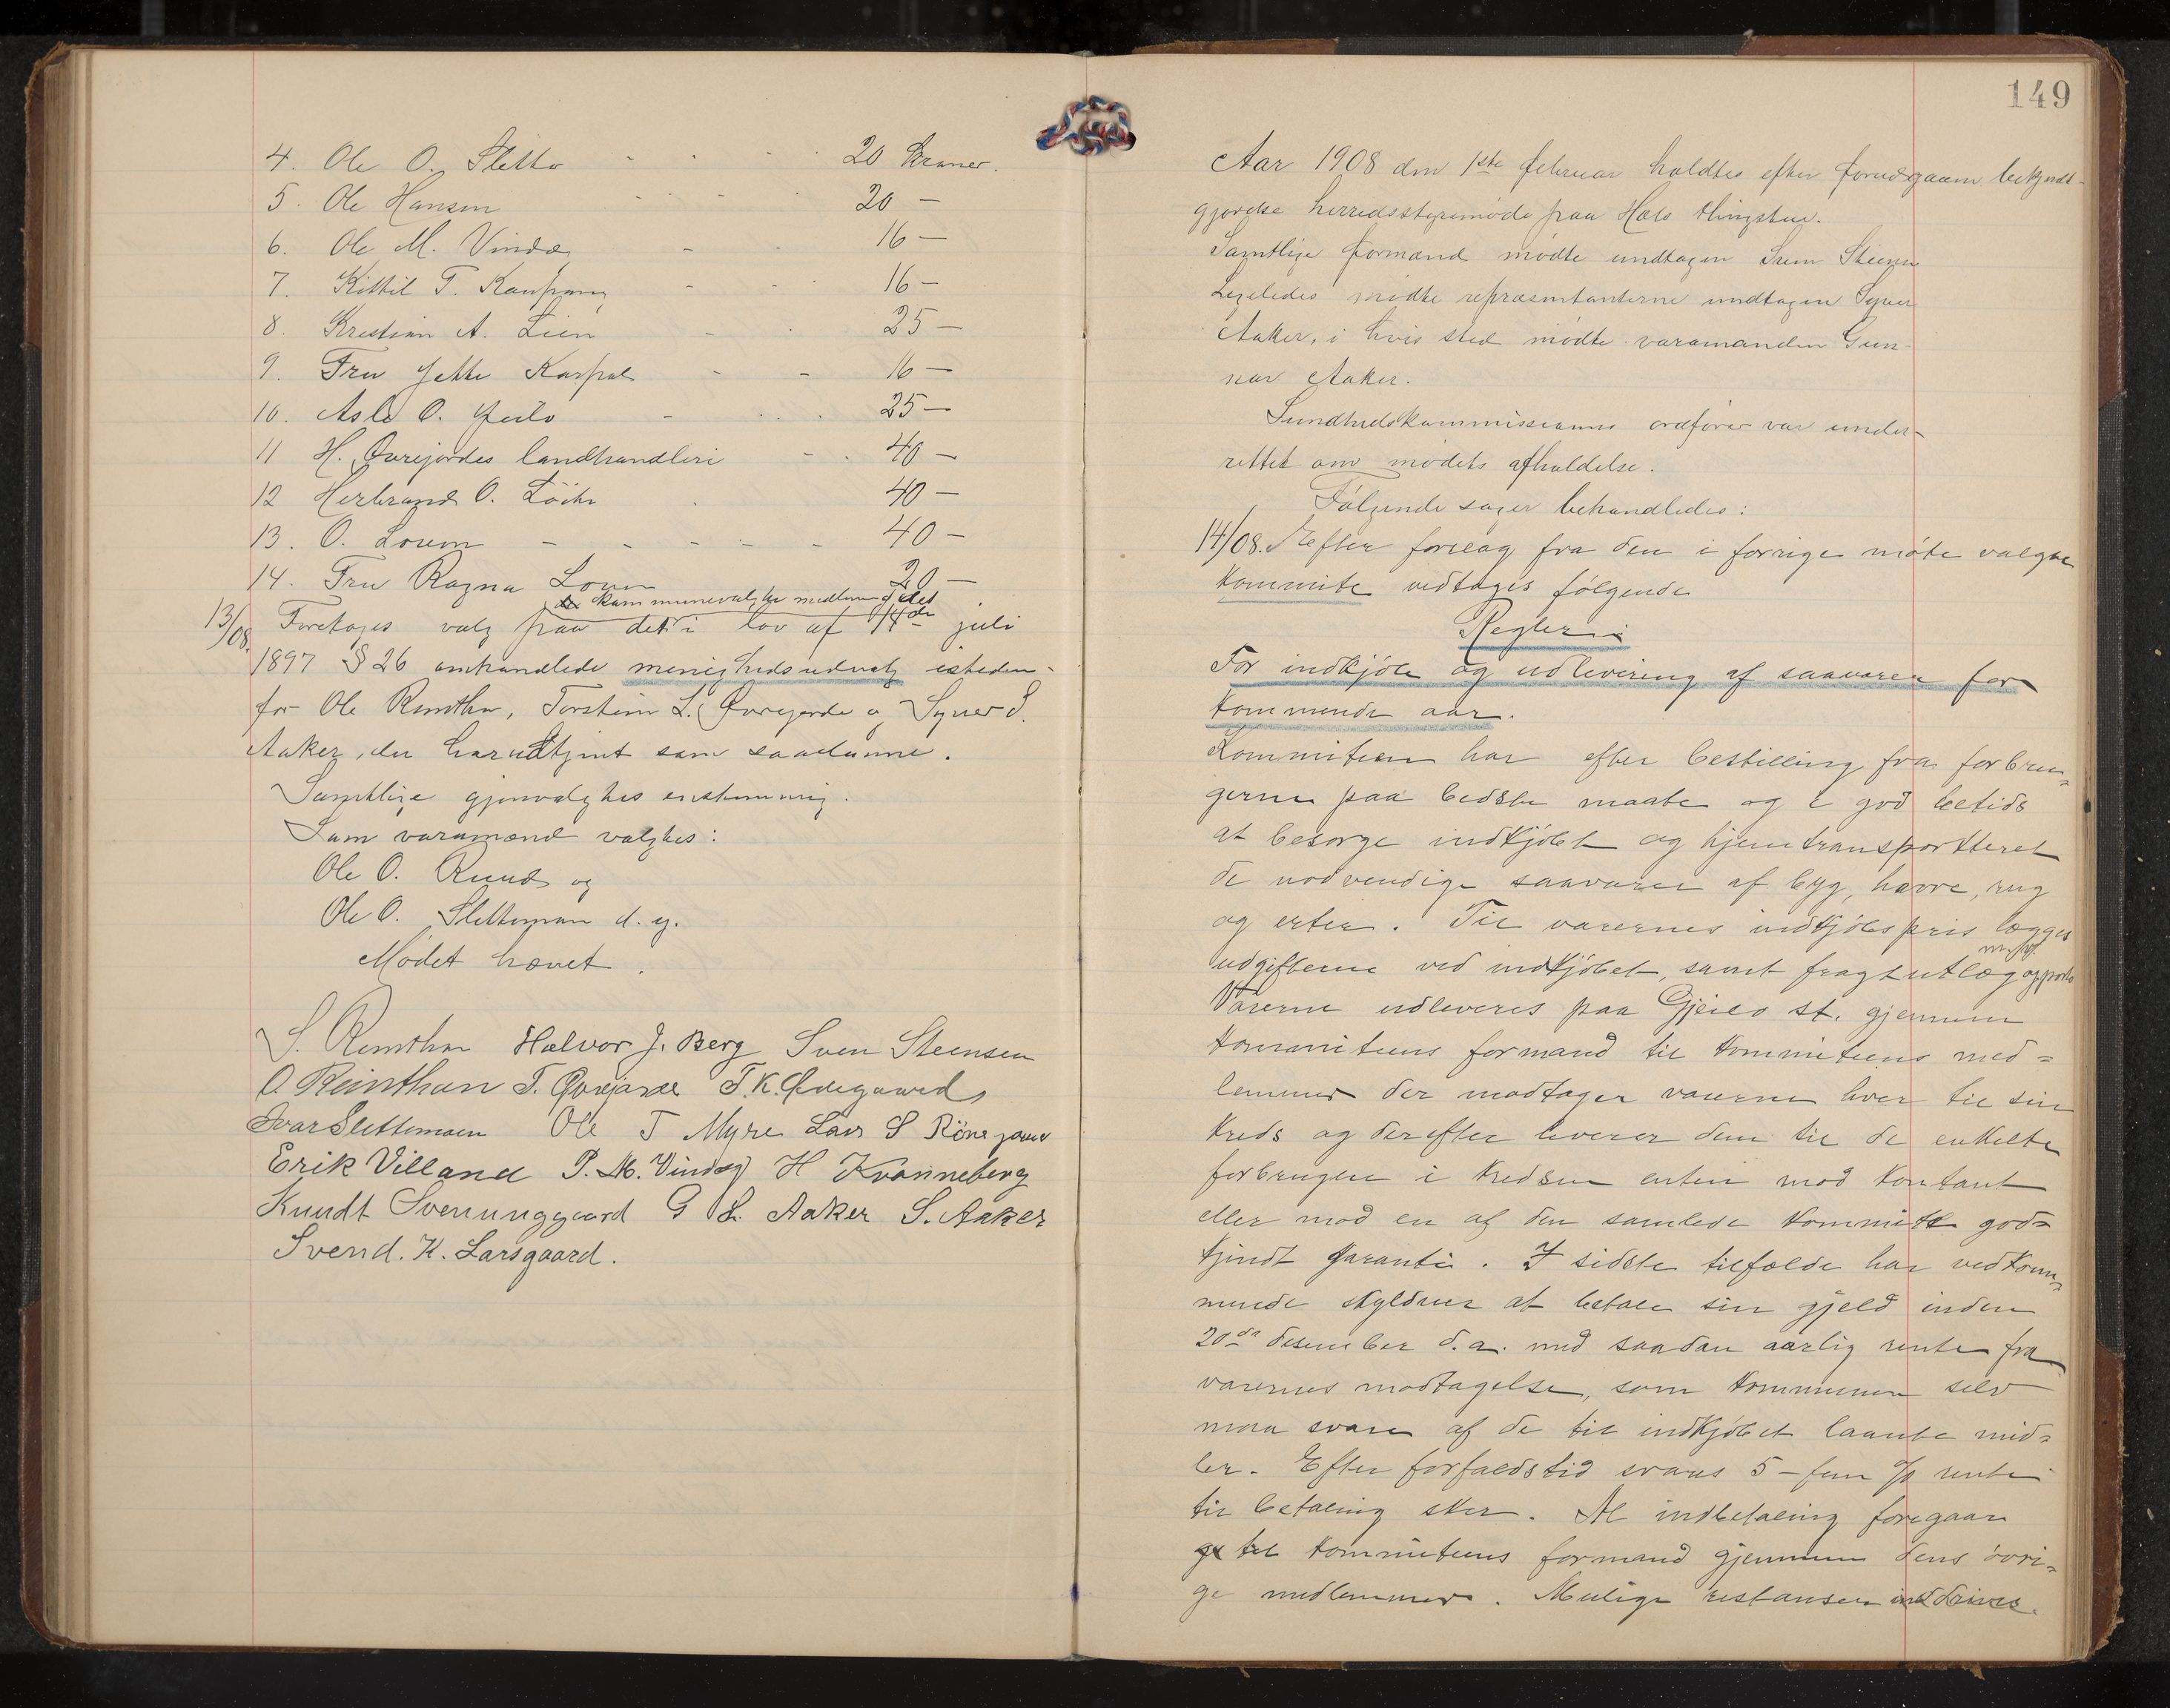 4. Ole O. Sletto - - - 20 Kroner.
5. Ole Hansen - - - 20 -
6. Ole M. Vindeg - - 16 -
7. Kittil T. Kaupang - - - 16 -
8. Kristian A. Lien - - 25 -
9. Fru Jette - - 16 -
10. Asle O. Geilo - - - 25 -
11 H. Øvrejordes landhandleri - - 40 -
12 Herbrand O. - 40 -
13. O. Loven - - - - - 40 -
14. Fru Ragna Loven 20 -
kommunevalgte medlem af det
13/08. Foretoges valg paa det i lov af 14de juli
1897 § 26 omhandlede menighedsudvalg isteden-
for Ole Reinthon, Torstein L. Øvrejorde og Syver S.
Aaker, der har udtjent som saadanne.
Samtlige gjenvalgtes enstemmig.
Som varamænd valgtes:
Ole O. Ruud og
Ole O. Slettemoen d. y.
Mødet hævet.
S. Reinthon Halvor J. Berg Sven Steensen
O Reinthon T. Øvrejorde T. K. Ødegaard
Ivar Slettemoen Ole T Myre Lars S
Erik Villand P. M. Vindeg H Kvanneberg
Knudt Svenunggaard G S. Aaker S. Aaker
Svend. K. Larsgaard.
149
Aar 1908 den 1ste februar holdtes efter forudgaaen bekjendt-
gjørelse herredsstyremøde paa Hols thingstue.
Samtlige formænd mødte undtagen Sven Steensen
Ligeledes mødte repræsentanterne undtagen Syver
Aaker, i hvis sted mødte varamanden Gun-
nar Aaker.
Sundhedskommissionens ordfører var under-
rettet om mødets afholdelse.
Følgende sager behandledes:
14/08. Efter forslag fra den i forrige møte valgte
kommite vedtages følgende
Regler:
For indkjøb og udlevering af saavarer for
kommende aar.
Kommiteen har efter bestilling fra forbru-
gerne paa bedste maate og i god betids
at besørge indkjøbt og hjemtransportteret
de nødvendige saavarer af byg, havre, rug
og erter. Til varernes indkjøbspris lægges
udgifterne ved indkjøbet, samt fragtutlæg
Varerne udleveres paa Gjeilo st. gjennem
kommiteens formand til kommiteens med=
lemmer der modtager varerne hver til sin
kreds og derefter leverer dem til de enkelte
forbrugere i kredsen enten mod kontant
eller mod en af den samlede kommite god=
kjendt garanti. I sidste tilfælde har vedkom=
mende skyldner at betale sin gjeld inden
20de desember d. a. med saadan aarlig rente fra
varernes modtagelse, som kommunen selv
maa svare af de til indkjøbet laante mid=
ler. Efter forfaldstid svares 5 - fem % rente
til betaling sker. Al indbetaling foregaar
til kommiteens formand gjennem dens øvri=
ge medlemmer. Mulige restanser inddrives